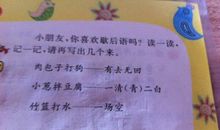 小朋友,你喜欢歇后语吗?读一读,
记一记,请再写出几个来。
肉包子打狗——有去无回
小葱拌豆腐——一清(青)二白
竹篮打水——一场空